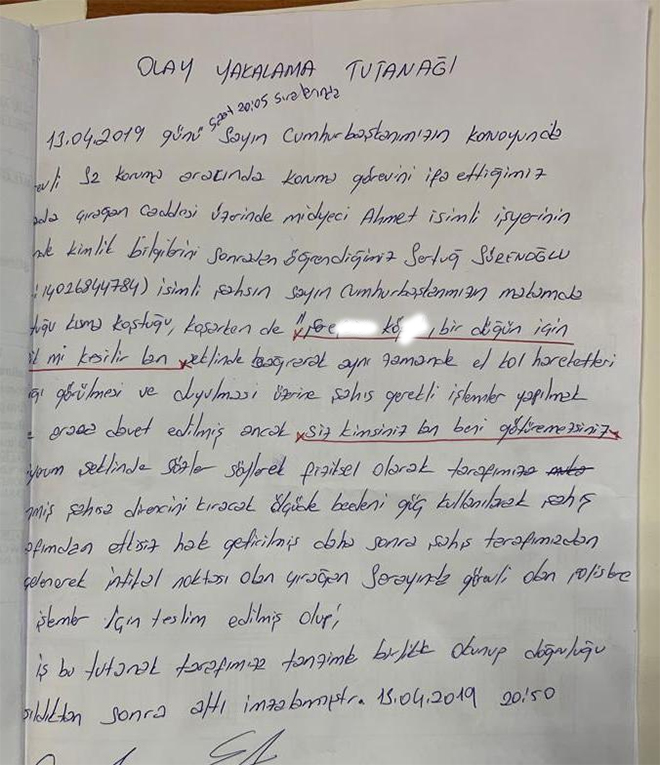 OLAY YAKALAMA TUTANAĞI
saat 20:05 sıralarında
13.04.2019 günü Sayın Cumhurbaşkanımızın konvoyunda
evli S2 koruma aracında koruma görevini ifa ettiğimiz
ada Çırağan Caddesi üzerinde midyeci Ahmet isimli işyerinin
nde kimlik bilgilerini sonradan öğrendiğimiz Sertuğ SÜRENOĞLU
:14026844784) isimli şahsın sayın Cumhurbaşkanımızın makamda
duğu kısma koştuğu, koşarken de " kö , bir düğün için
mi kesilir lan şeklinde bağırarak aynı zamanda el kol hareketleri
ığı görülmesi ve duyulması üzerine şahıs gerekli işlemler yapılmak
e araca davet edilmiş ancak siz kimsiniz lan beni götüremezsiniz
yorum şeklinde sözler söylerek fiziksel olarak tarafımıza
nmiş şahsa direncini kıracak ölçüde bedeni güç kullanılarak şahıs
afımızdan etkisiz hale getirilmiş daha sonra şahıs tarafımızdan
çelenerek intikal noktası olan Çırağan Sarayında görevli olan polislere
işlemler için teslim edilmiş olup;
iş bu tutanak tarafımızca tanzimle birlikte okunup doğruluğu
ıldıktan sonra altı imzalanmıştır. 13.04.2019 20:50